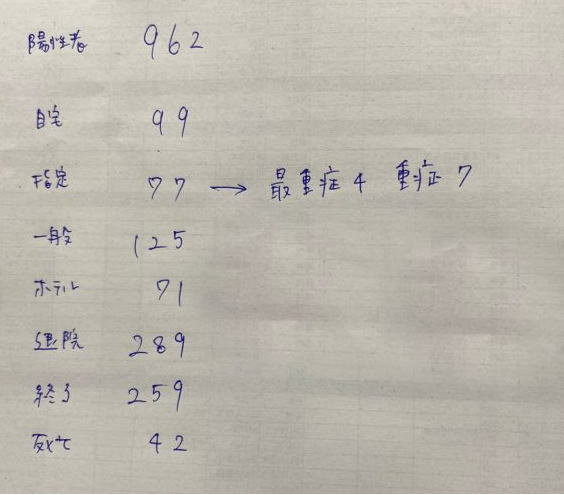 陽性者 962
自宅 99
指定 77 → 最重症 4 重症 7
一般 125
ホテル 71
退院 289
終了 259
死亡 42